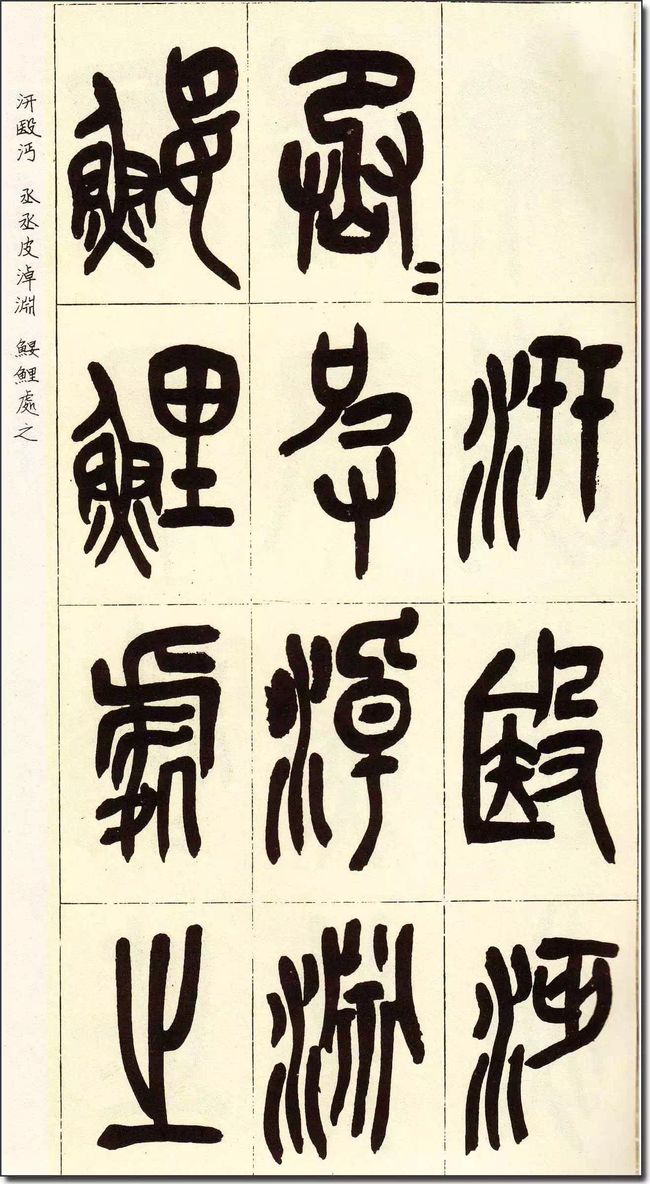 汧殹沔
丞=皮淖淵
鰋鯉處之
汧殹沔 丞丞皮淖淵 鰋鯉處之